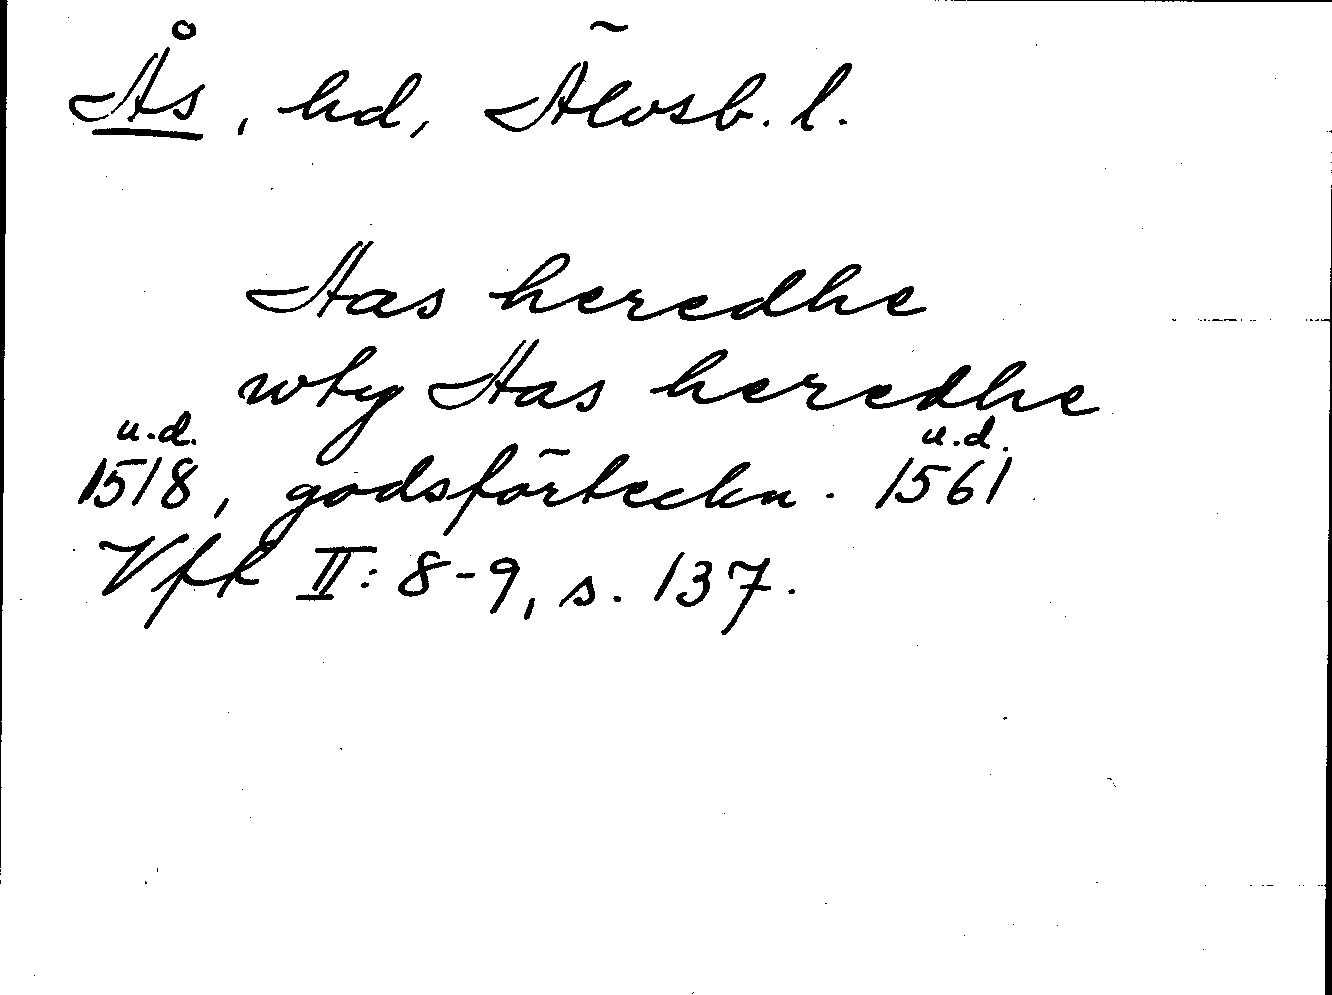 Ås, hd, Älvsb. l.
Aas heredhe
wty Aas heredhe
u.d. u.d.
1518, godsförteckn. 1561
Vfk II: 8-9, s. 137.